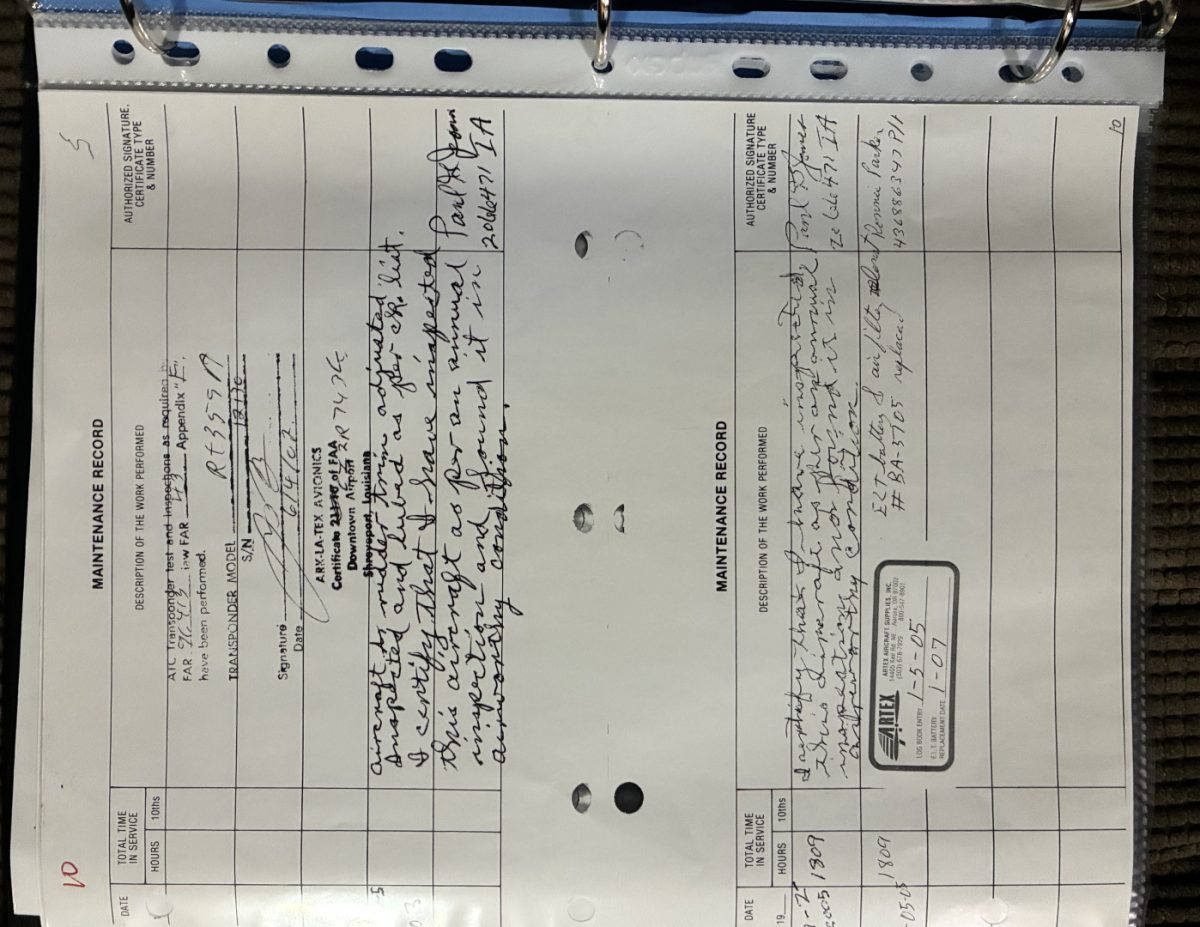 10
5
MAINTENANCE RECORD
DATE
TOTAL TIME IN SERVICE
HOURS
10ths
DESCRIPTION OF THE WORK PERFORMED
AUTHORIZED SIGNATURE, CERTIFICATE TYPE & NUMBER
ATC Transponder test and inspections as required
FAR 91.413 iaw FAR 43 Appendix "F".
have been performed.
TRANSPONDER MODEL Rt 359A
S/N
Signature
Date 6/4/02
ARK-LA-TEX AVIONICS
Certificate of FAA
Downtown Airport
Shreveport, Louisiana
aircraft & rudder trim adjusted
Inspected and lubed as per ck. list.
I certify that I have inspected
this aircraft as per an annual
inspection and found it in
airworthy condition.
2066471 IA
MAINTENANCE RECORD
DATE
19
TOTAL TIME IN SERVICE
HOURS
10ths
DESCRIPTION OF THE WORK PERFORMED
AUTHORIZED SIGNATURE CERTIFICATE TYPE & NUMBER
2005 1809
I certify that I have inspected
this aircraft as per an annual
inspection and found it in
airworthy condition
IA
-05-05 1809
ELT battery & air filter Ronnie Parker
# BA-57105 replaced 436886347 P11
ARTEX
ARTEX AIRCRAFT SUPPLIES, INC.
LOG BOOK ENTRY 1-5-05
E.L.T. BATTERY
REPLACEMENT DATE: 1-07
10